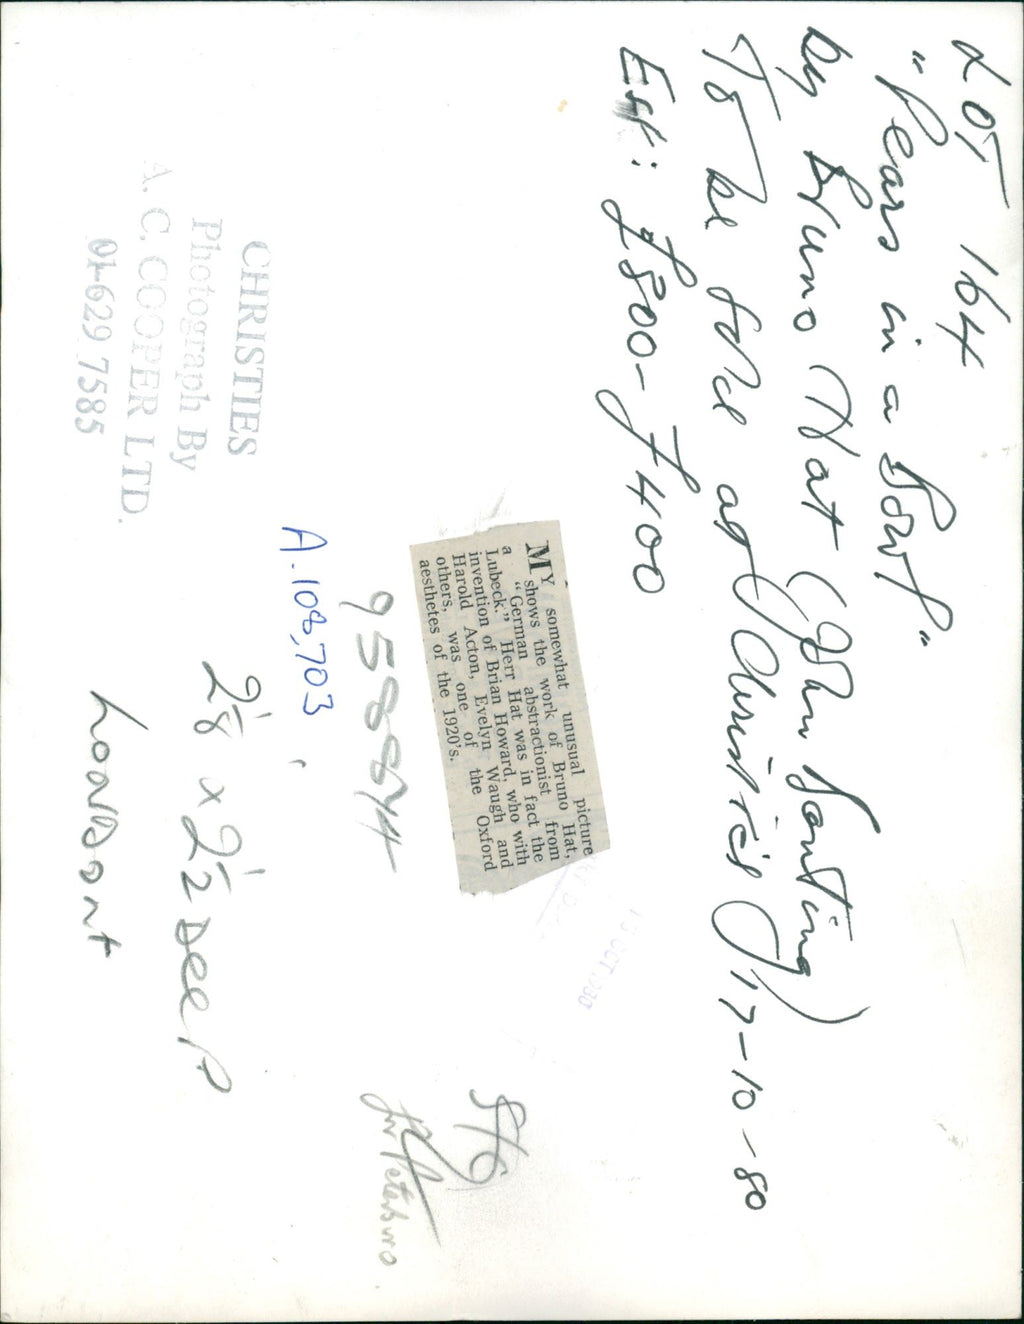 LOT 164
"Pears in a Bowl"
by Bruno Hat (John Banting)
To be sold at Christie's 17-10-80
Est: £300-£400
MY somewhat unusual picture
shows the work of Bruno Hat,
a "German abstractionist from
Lubeck." Herr Hat was in fact the
invention of Brian Howard, who with
Harold Acton, Evelyn Waugh and
others, was one of the Oxford
aesthetes of the 1920's.
13 OCT 1980
CHRISTIES
Photograph By
A. C. COOPER LTD.
01-629 7585
A.108,703
2 1/8 x 2 1/2 Deep